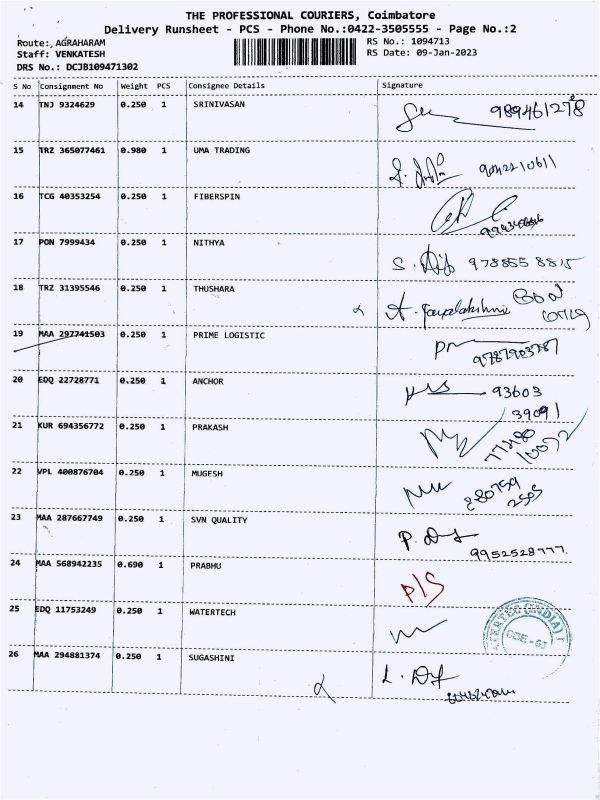 THE PROFESSIONAL COURIERS, Coimbatore
Delivery Runsheet - PCS - Phone No.:0422-3505555 - Page No.:2
Route: AGRAHARAM
Staff: VENKATESH
DRS No.: DCJB109471302
RS No.: 1094713
RS Date: 09-Jan-2023
S No Consignment No Weight PCS Consignee Details Signature
14 TNJ 9324629 0.250 1 SRINIVASAN
15 TRZ 365077461 0.980 1 UMA TRADING 9042210611
16 TCG 40353254 0.250 1 FIBERSPIN
17 PON 7999434 0.250 1 NITHYA 9788558815
18 TRZ 31395546 0.250 1 THUSHARA A. Jayalakshmi
19 MAA 297741503 0.250 1 PRIME LOGISTIC
20 EDQ 22728771 0.250 1 ANCHOR 93603
39091
21 KUR 694356772 0.250 1 PRAKASH
22 VPL 400876704 0.250 1 MUGESH
23 MAA 287667749 0.250 1 SVN QUALITY
24 MAA 568942235 0.690 1 PRABHU P/S
25 EDQ 11753249 0.250 1 WATERTECH
26 MAA 294881374 0.250 1 SUGASHINI